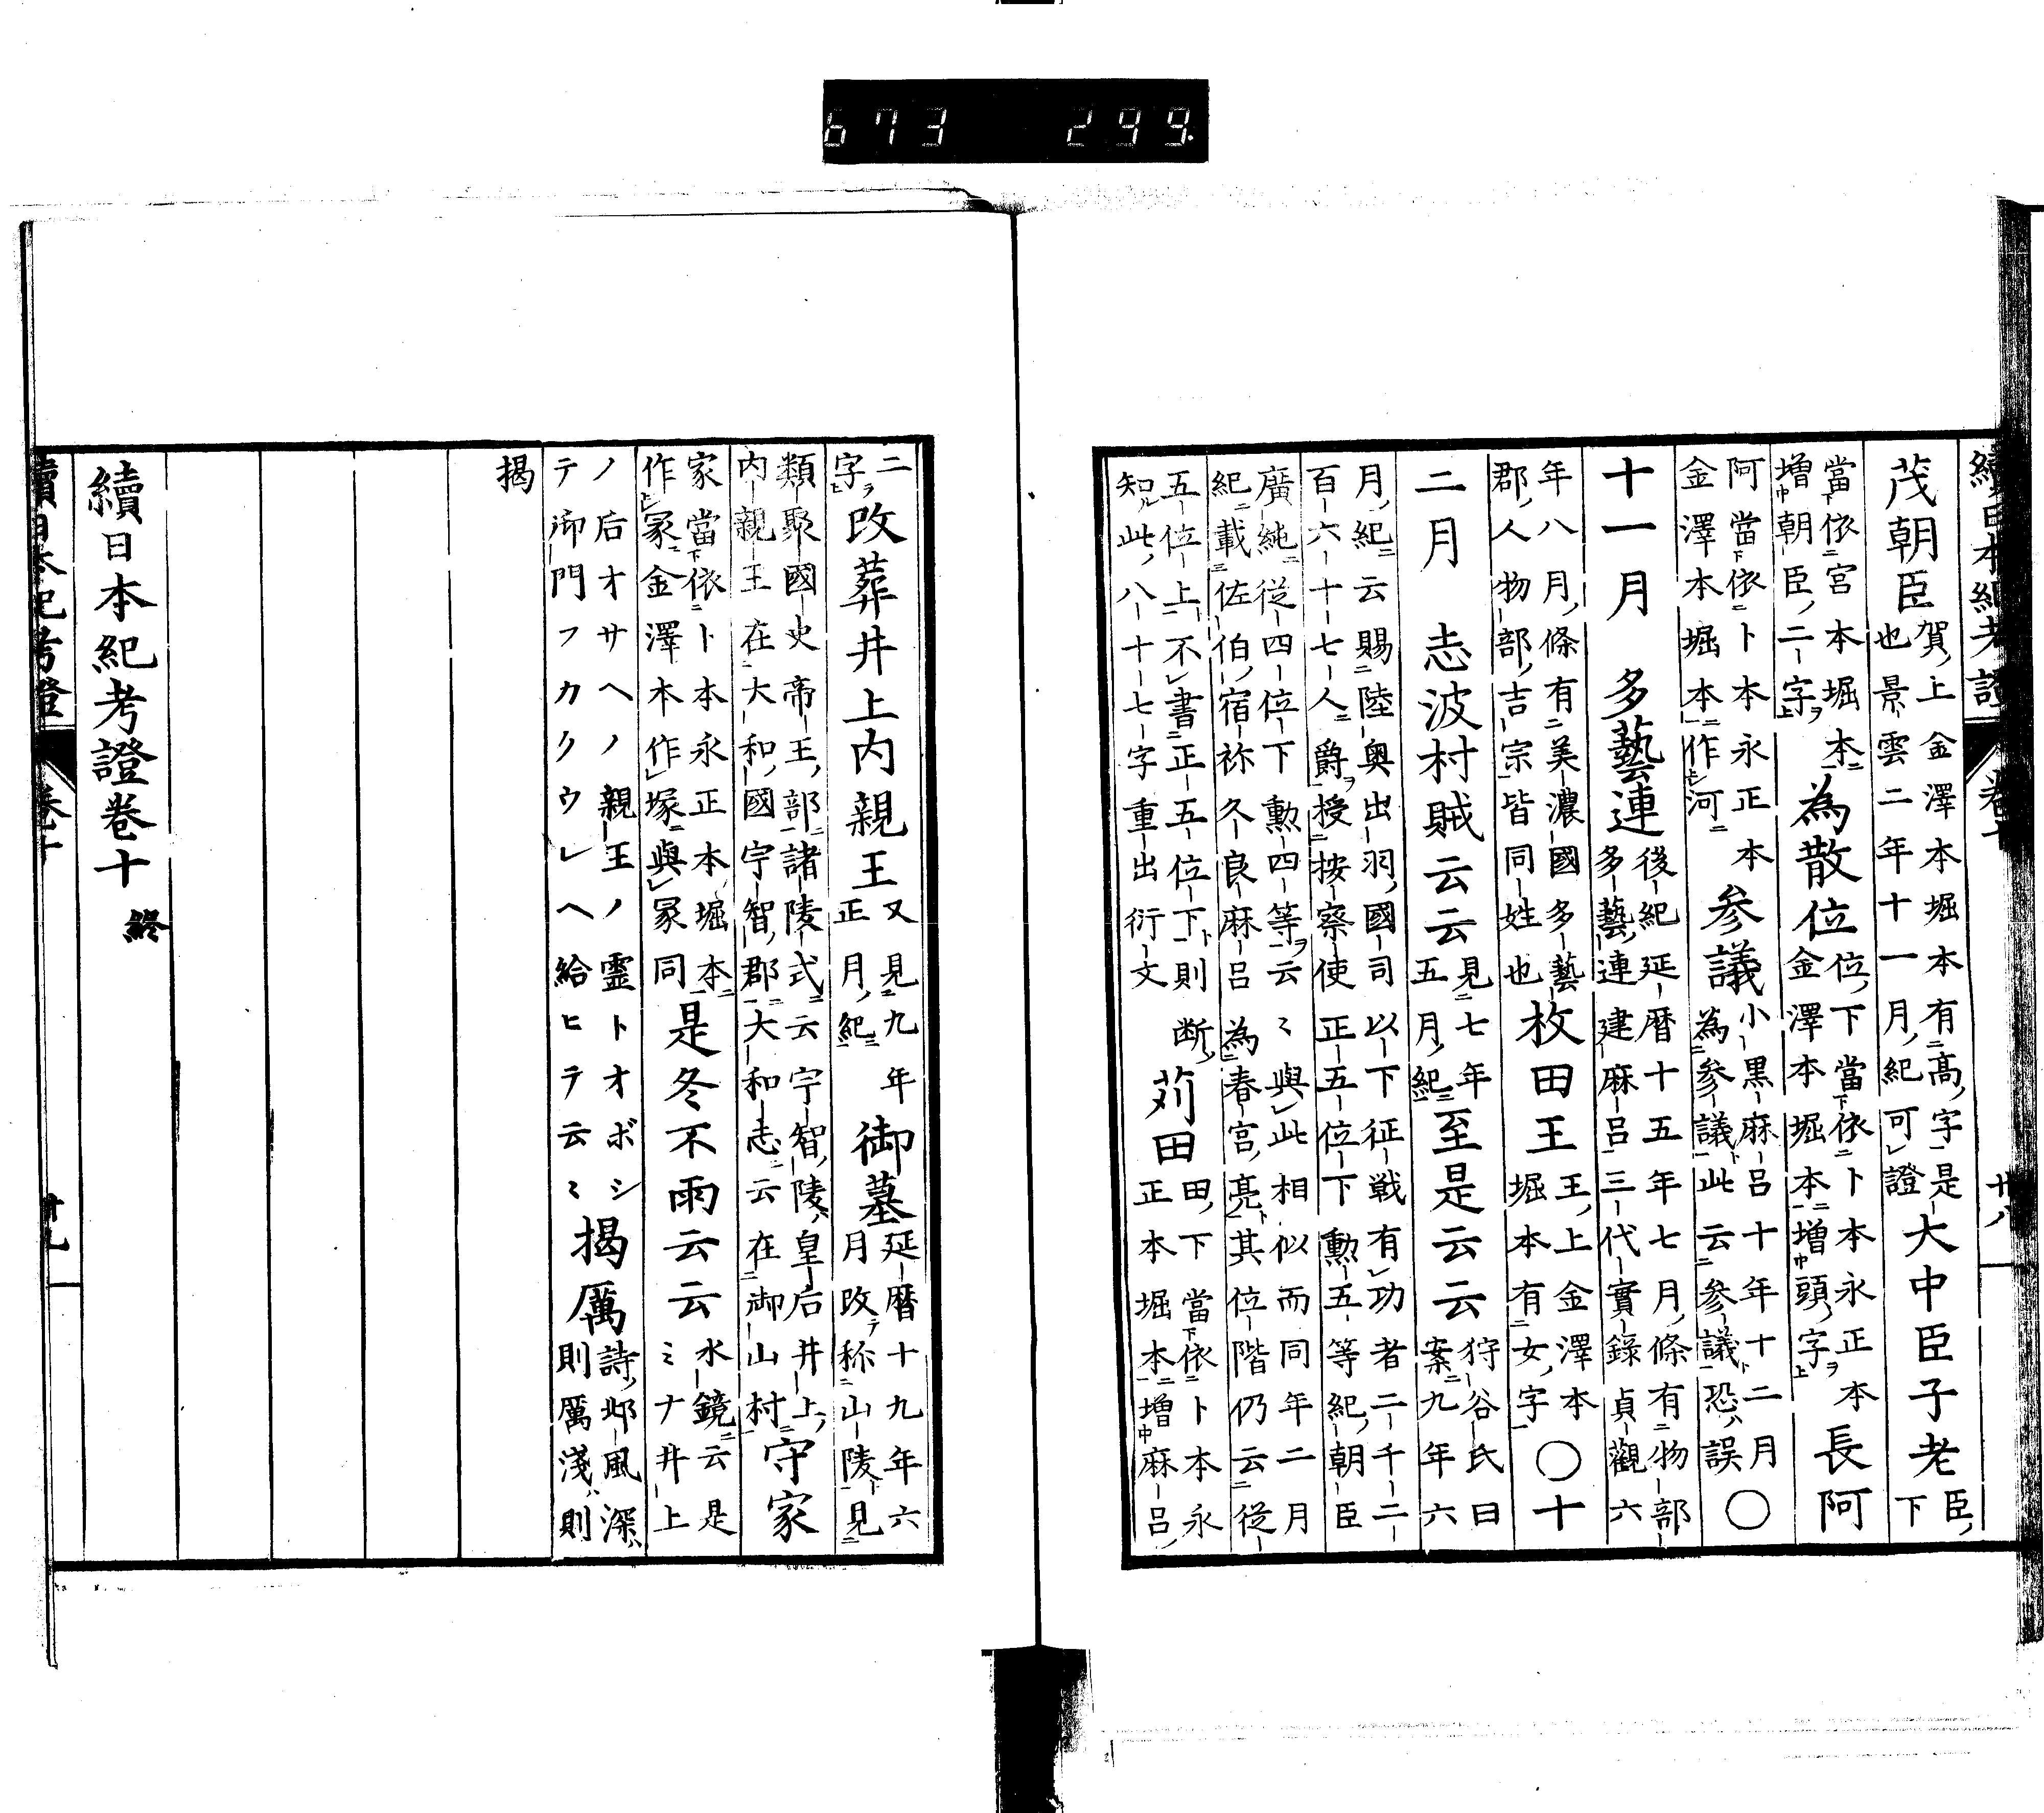 續日本紀考證 卷十 廿八
茂朝臣
賀上金澤本堀本有高字是
也景雲二年十一月紀可證
大中臣子老
臣
下
當依宮本堀本
増朝臣二字
為散位
位下當依卜本永正本
金澤本堀本増頭字
長阿
阿當依卜本永正本
金澤本堀本作河
參議
小黒麻呂十年十二月
為參議此云參議恐誤
○
十一月 多藝連
後紀延暦十五年七月條有物部
多藝連建麻呂三代實錄貞觀六
年八月條有美濃國多藝
郡人物部吉宗皆同姓也
枚田王
王上金澤本
堀本有女字
○十
二月 志波村賊云云
見七年
五月紀
至是云云
狩谷氏曰
案九年六
月紀云賜陸奥出羽國司以下征戦有功者二千二
百六十七人爵授按察使正五位下勳五等紀朝臣
廣純從四位下勳四等云〻與此相似而同年二月
紀載佐伯宿祢久良麻呂為春宮亮其位階仍云從
五位上不書正五位下則断
知此八十七字重出衍文
苅田
田下當依卜本永
正本堀本増麻呂
二
字
改葬井上内親王
又見九年
正月紀
御墓
延暦十九年六
月改称山陵見
類聚國史帝王部諸陵式云宇智陵皇后井上
内親王在大和國宇智郡大和志云在御山村
守家
家當依卜本永正本堀本
作冢金澤本作塚與冢同
是冬不雨云云
水鏡云是
ミナ井上
ノ后オサヘノ親王ノ霊トオボシ
テ御門フカクウレヘ給ヒテ云〻
揭厲
詩邶風深
則厲淺則
揭
續日本紀考證卷十 終
續日本紀考證 卷十 廿九